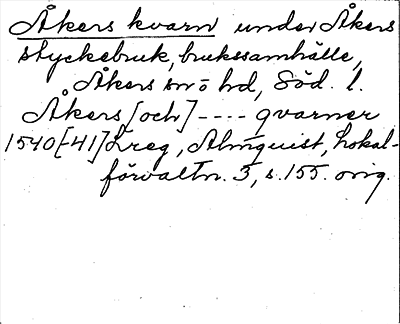 Åkers kvarn under Åkers
styckebruk, brukssamhälle,
Åkers sn ö hd, Söd. l.
Åkers [och] ---- qvarner
1540[-41] Lreg, Almquist, Lokal-
förvaltn. 3, s. 155. orig.